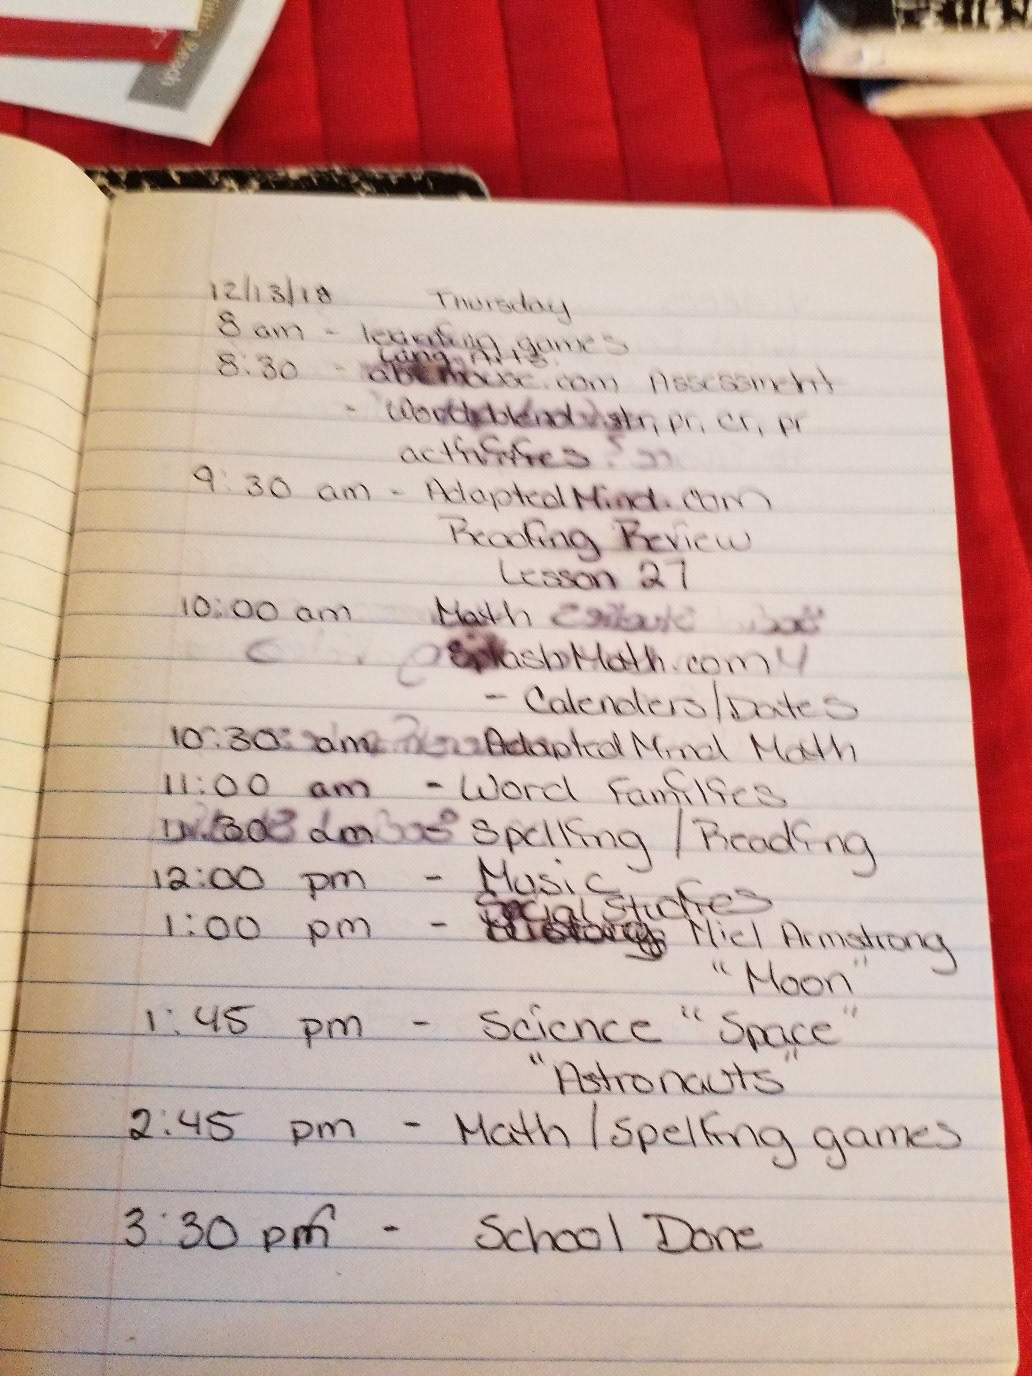 Read
12/13/18 Thursday
8 am - learning games
Lang Arts.
8:30 - abcmouse.com Assessment
- Word blend str, pr, cr, pr
activities
9:30 am - AdaptedMind.com
Reading Review
Lesson 27
10:00 am Math
SplashMath.com
- Calenders/Dates
10:30 am AdaptedMind Math
11:00 am - Word Families
11:30 am Spelling / Reading
12:00 pm - Music
Social Studies
1:00 pm - History Niel Armstrong
"Moon"
1:45 pm - Science "Space"
"Astronauts"
2:45 pm - Math / Spelling games
3:30 pm - School Done